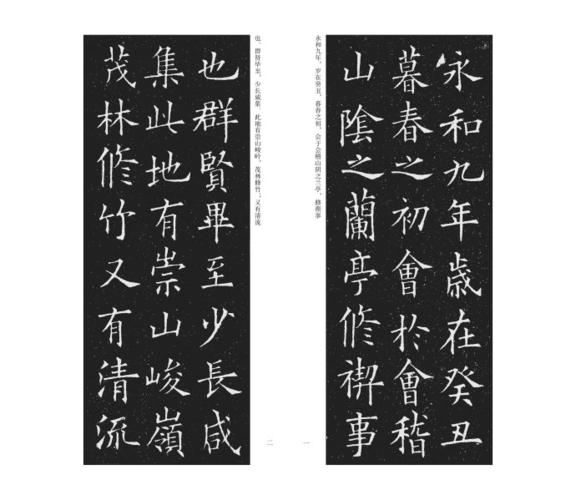 永和九年歲在癸丑
暮春之初會於會稽
山陰之蘭亭脩禊事
永和九年，岁在癸丑，暮春之初，会于会稽山阴之兰亭，修禊事
一
也。群贤毕至，少长咸集。此地有崇山峻岭，茂林修竹；又有清流
也群賢畢至少長咸
集此地有崇山峻嶺
茂林脩竹又有清流
二